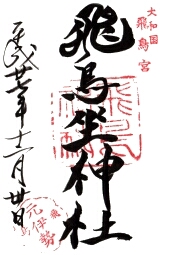 大和国
飛鳥宮
飛鳥坐神社
平成廿一年十一月廿日
元伊勢